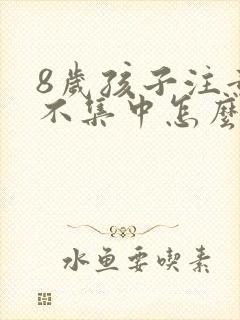 8歲孩子注
不集中怎麼
水鱼要喫素